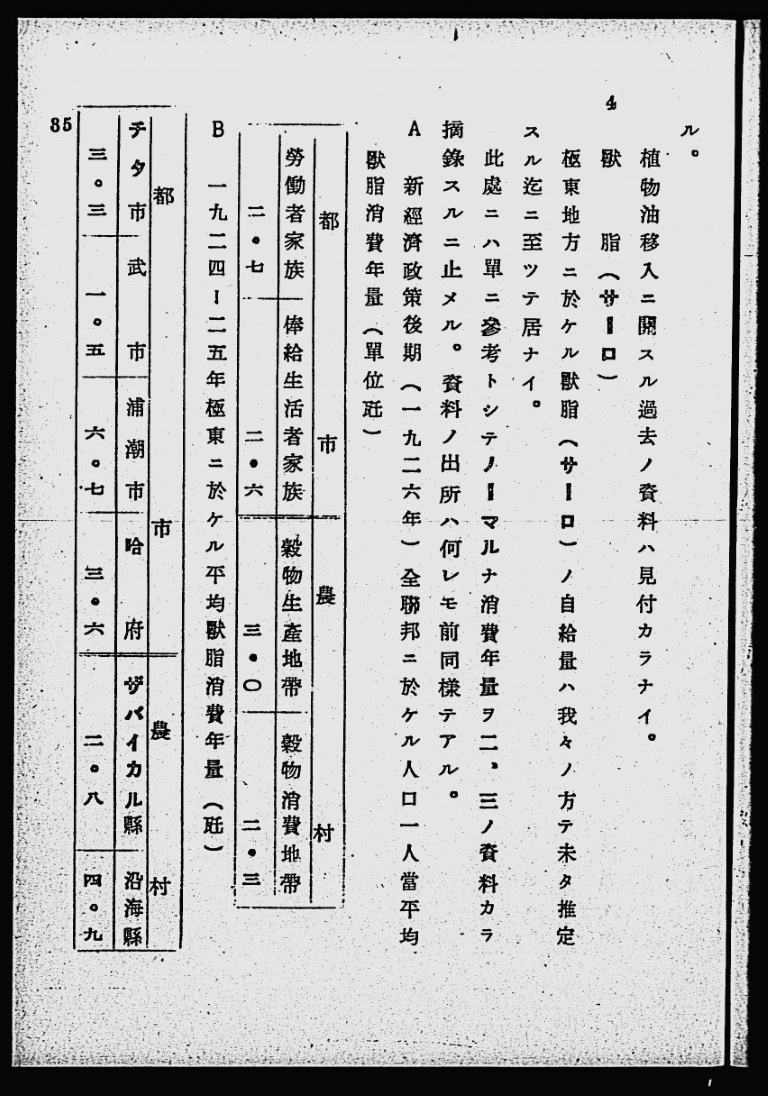 ル。
植物油移入ニ關スル過去ノ資料ハ見付カラナイ。
4 獸脂(サーロ)
極東地方ニ於ケル獸脂(サーロ)ノ自給量ハ我々ノ方テ未タ推定
スル迄ニ至ツテ居ナイ。
此處ニハ單ニ參考トシテノーマルナ消費年量ヲ二、三ノ資料カラ
摘錄スルニ止メル。資料ノ出所ハ何レモ前同様テアル。
A 新經濟政策後期(一九二六年)全聯邦ニ於ケル人口一人當平均
獸脂消費年量(單位瓩)
都市 農村
勞働者家族 俸給生活者家族 穀物生產地帶 穀物消費地帶
二・七 二・六 三・〇 二・三
B 一九二四ー二五年極東ニ於ケル平均獸脂消費年量(瓩)
都市 農村
チタ市 武市 浦潮市 哈府 ザバイカル縣 沿海縣
三。三 一。五 六。七 三・六 二。八 四。九
85